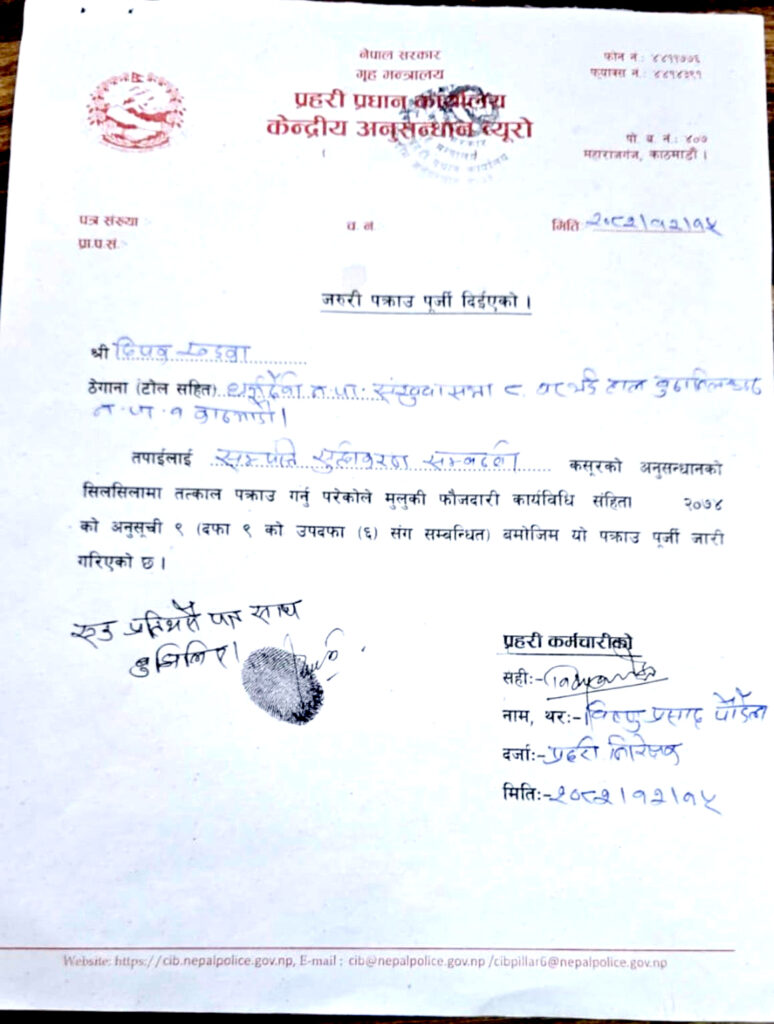 नेपाल सरकार
गृह मन्त्रालय
प्रहरी प्रधान कार्यालय
केन्द्रीय अनुसन्धान ब्यूरो
फोन नं : ४४११७७६
फ्याक्स नं :
पो. ब. नं.: ४०७
महाराजगंज, काठमाडौं ।
पत्र संख्या :-
प्रा.प.सं.:-
च. नं.
मिति: २०८२।१२।१५
जरुरी पक्राउ पूर्जी दिईएको ।
श्री दिपक खड्का
ठेगाना (टोल सहित) धर्मदेवी न.पा. संखुवासभा ८ घर भई हाल बुढानिलकण्ठ
न.पा. १ काठमाडौं।
तपाईलाई सम्पत्ति शुद्धिकरण सम्बन्धी कसूरको अनुसन्धानको
सिलसिलामा तत्काल पक्राउ गर्नु परेकोले मुलुकी फौजदारी कार्यविधि संहिता २०७४
को अनुसूची ९ (दफा ९ को उपदफा (६) संग सम्बन्धित) बमोजिम यो पक्राउ पूर्जी जारी
गरिएको छ ।
एउ प्रति मैले पाए साथ
बुझिलिए।
प्रहरी कर्मचारीको
सही:-
नाम, थर:- विष्णु प्रसाद पौडेल
दर्जा:- प्रहरी निरीक्षक
मिति:- २०८२।१२।१५
Website: https://cib.nepalpolice.gov.np, E-mail : cib@nepalpolice.gov.np /cibpillar6@nepalpolice.gov.np